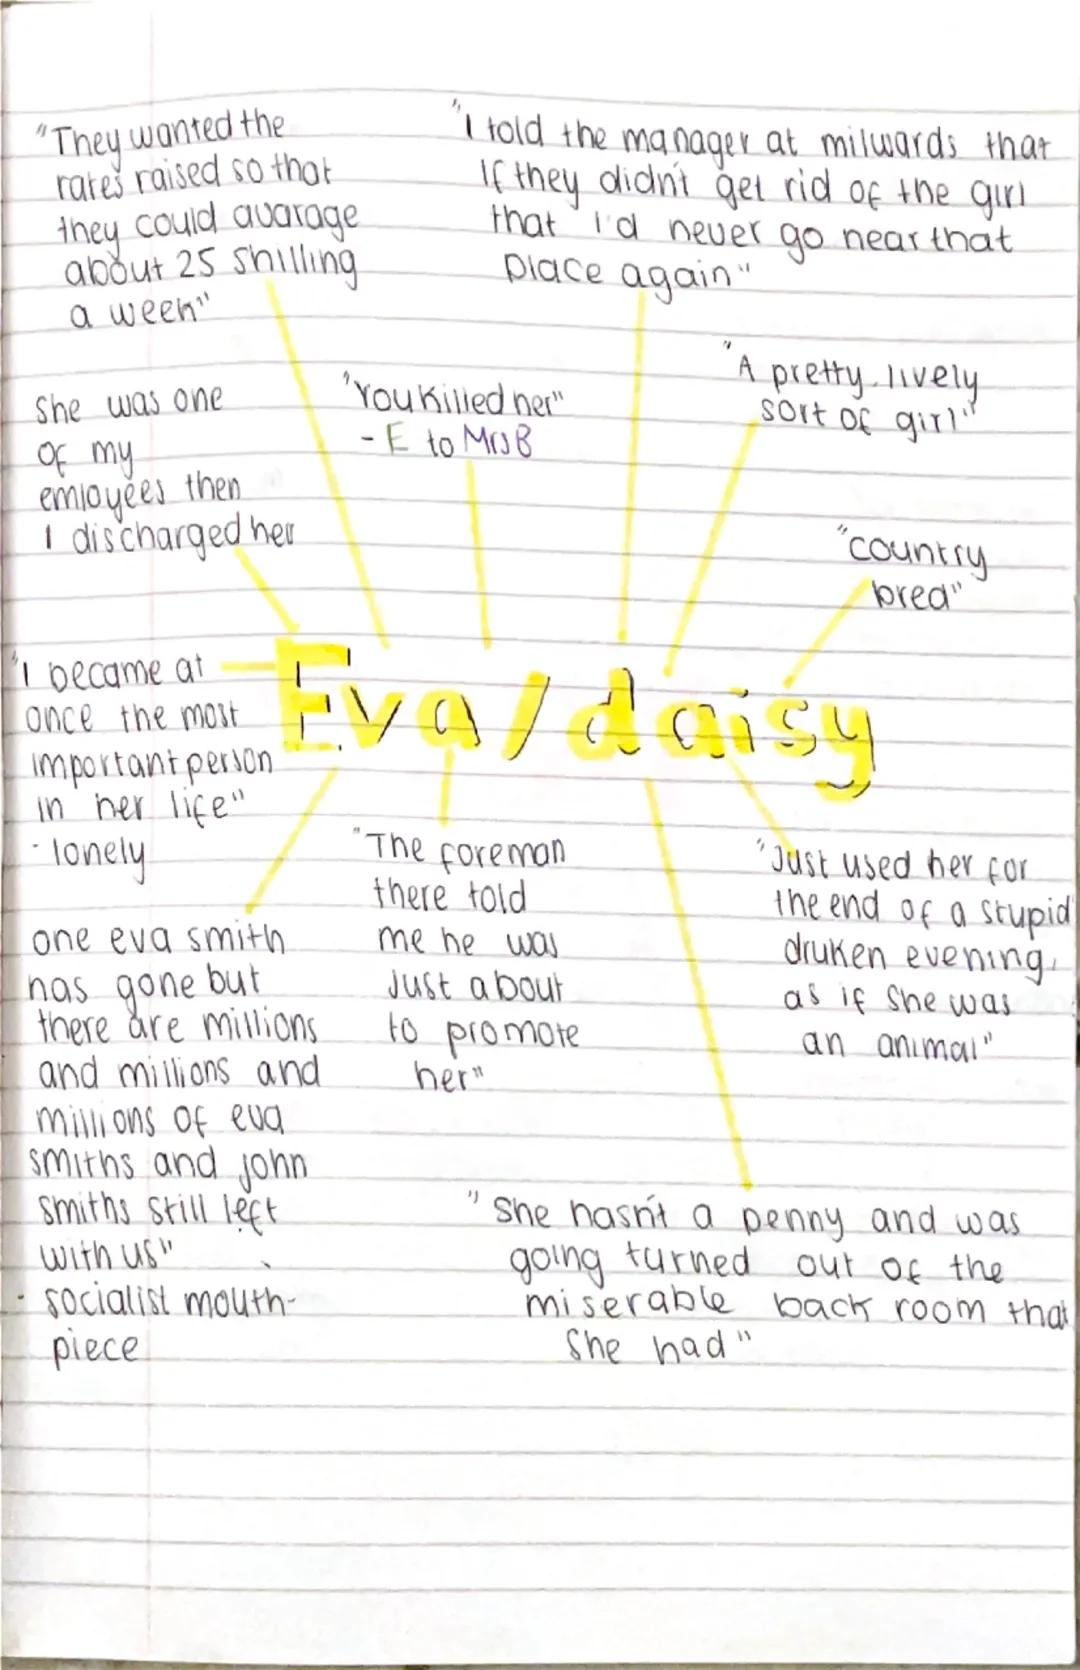 "They wanted the
rates raised so that
they could avarage
about 25 shilling
a week"
"I told the manager at milwards that
If they didn't get rid of the girl
that I'd never go near that
place again"
she was one
of my
emloyees then
I discharged her
"You Killed her"
- E to Mrs B
"A pretty lively
sort of girl"
"country
bred"
Eva/daisy
"I became at
once the most
important person
in her life"
- lonely
one eva smith
has gone but
there are millions
and millions and
millions of eva
smiths and john
smiths still left
with us"
- socialist mouth-
piece
"The foreman
there told
me he was
Just about
to promote
her"
"Just used her for
the end of a stupid
druken evening,
as if she was
an animal"
"She hasn't a penny and was
going turned out of the
miserable back room that
she had"